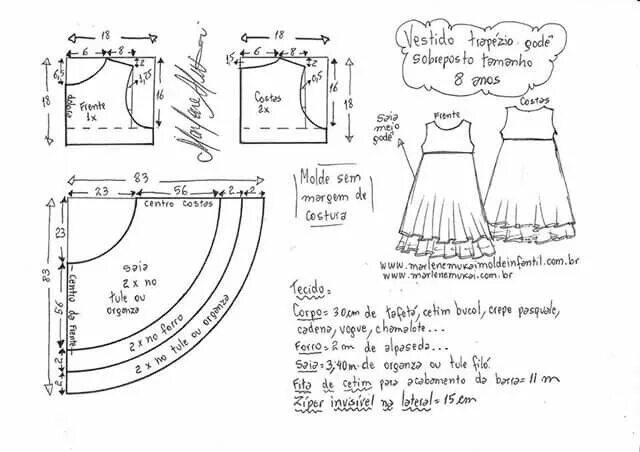 18
6
8
2
6,5
1,25
18
16
dobra
Frente
1x
18
6
8
1,5
2
0,5
16
18
Costas
2x
Marlene Mukai
Vestido trapézio godê
sobreposto tamanho
8 anos
Frente
Costas
Saia
meio
godê
www.marlenemukaimoldeinfantil.com.br
www.marlenemukai.com.br
83
23
56
2
2
centro costas
23
83
56
2
2
Centro da Frente
Saia
2x no
tule ou
organza
2x no forro
2x no tule ou organza
Molde sem
margem de
costura
Tecido=
Corpo= 30cm de tafetá, cetim bucol, crepe pasquale,
cadena, vogue, chamalote...
Forro= 2m de alpaseda...
Saia= 3,40m de organza ou tule filó.
Fita de cetim para acabamento da barra= 11m
Zíper invisível na lateral= 15cm